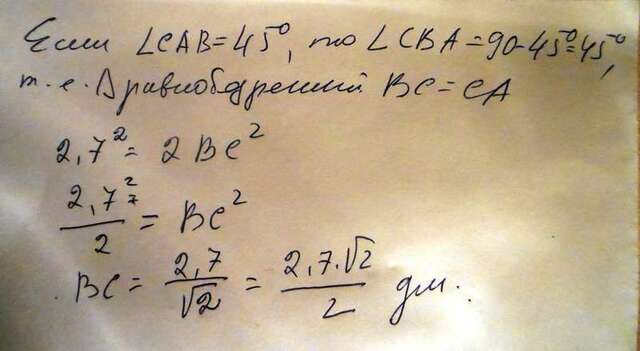 Если ∠CAB=45°, то ∠CBA=90-45°=45°,
т.е. Δ равнобедренный BC=CA
2,7²=2BC²
2,7²/2=BC²
BC=2,7/√2=2,7·√2/2 дм.